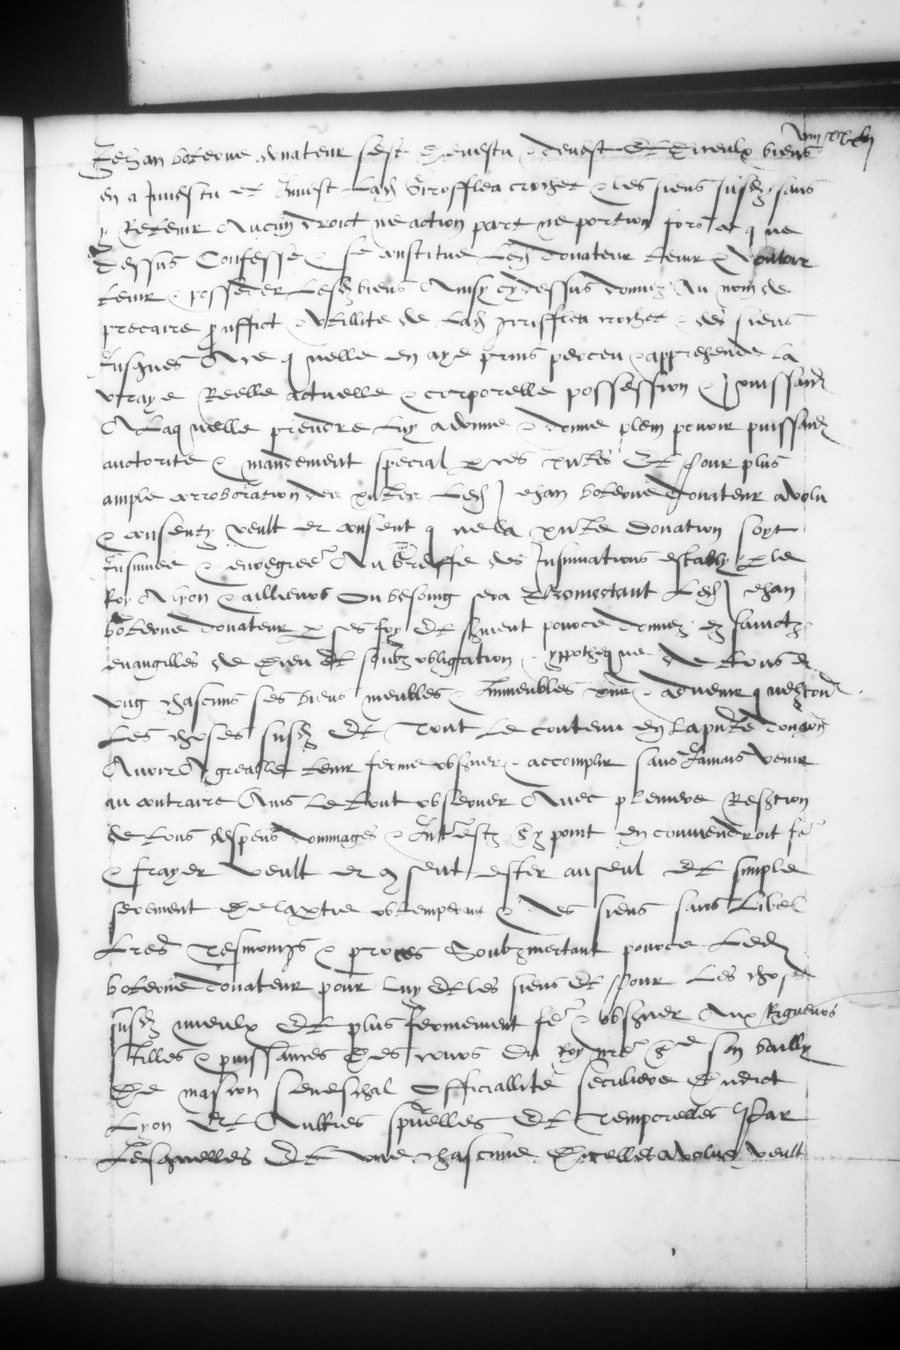 Jehan boterne donateur sest devestu & devest et diceulx biens
en a Investu et Invest Lad girofflea crochet & les siens susd sans
y Retenir Aucun droict ne action part ne portion fors ce q ne
dessus Confesse & se constitue Led donateur tenir & vouloir
tenir & posseder Lesd biens Ainsy cydessus donnez Au nom de
precaire prouffict & utillite de Lad girofflea crochet & des siens
Jusques Ace q nelle en aye prins perceu & apprehende La
vraye Reelle actuelle & corporelle possession & Jouissand
A Laquelle prendre Luy a donne & donne plein pouvoir puissand
auctorite & mandement special p ces pntes Et Pour plus
ample corroboration des pntes Led Jehan boterne donateur a volu
& consenty veult et consent q ne la pnte donation soyt
Insinuee & enregree Au greffe des Insinuations estably p le
Roy A lyon & aillieurs ou besoing sera Promectant Led Jehan
boterne donateur p ses foy Et serment pource donnez es sainctz
evangilles de dieu Et soubz obligation & ypotheque de tous et
ung chascuns ses biens meubles & Immeubles pns & advenir q
Les choses susd Et Tout Le contenu en la pnte donaon
Avoir Agreable tenir ferme observer & accomplir sans Jamais venir
au contraire Ains Le tout observer Avec pleniere Restion
de tous despens dommages & Interestz sy point en conviendroit fe
& frayer veult et consent ester au seul Et simple
serement de la ptie obtemperant & des siens sans Libel
Lres Tesmoings & proces Soubzmectant pource Led
boterne donateur pour Luy Et les siens Et Pour Les choses
susd mieulx Et plus fermement fe & observer Aux Rigueurs
stilles & puissances des cours du Roy nre sr son bailly
De mascon seneschal Officiallite seculiere dudict
Lyon Et Aultres spuelles Et Temporelles Par
Lesquelles Et une chascune dicelles a volu veult